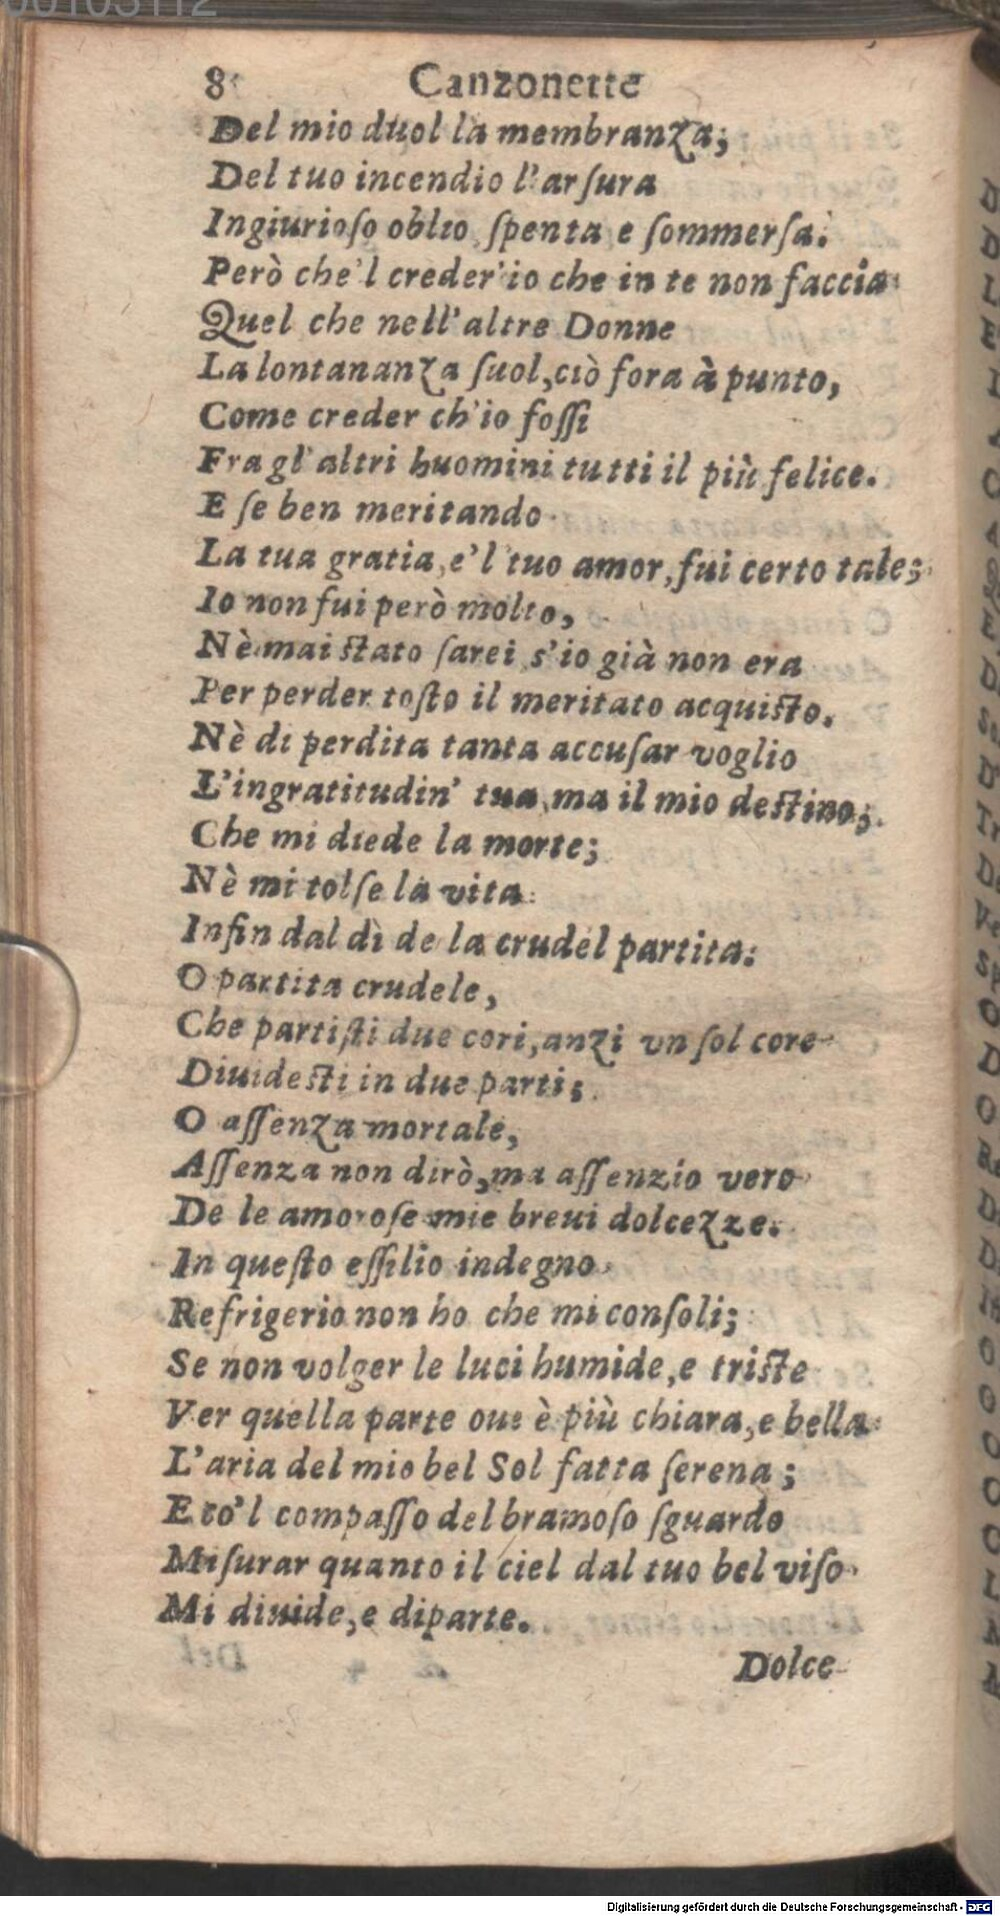 8 Canzonette
Del mio duol la membranza;
Del tuo incendio l'arſura
Ingiurioſo oblio ſpenta e ſommerſa.
Però che'l creder'io che in te non faccia
Quel che nell'altre Donne
La lontananza ſuol, ciò fora à punto,
Come creder ch'io foſſi
Fra gl'altri huomini tutti il più felice.
E ſe ben meritando
La tua gratia, e'l tuo amor, fui certo tale;
Io non fui però molto,
Nè mai ſtato ſarei s'io già non era
Per perder toſto il meritato acquiſto.
Nè di perdita tanta accuſar voglio
L'ingratitudin' tua, ma il mio deſtino;
Che mi diede la morte;
Nè mi tolſe la vita
Infin dal dì de la crudel partita:
O partita crudele,
Che partiſti due cori, anzi vn ſol core
Diuideſti in due parti;
O aſſenza mortale,
Aſſenza non dirò, ma aſſenzio vero
De le amoroſe mie breui dolcezze.
In queſto eſſilio indegno
Refrigerio non ho che mi conſoli;
Se non volger le luci humide, e triſte
Ver quella parte oue è più chiara, e bella
L'aria del mio bel Sol fatta ſerena;
E co'l compaſſo del bramoſo ſguardo
Miſurar quanto il ciel dal tuo bel viſo
Mi diuide, e diparte.
Dolce
Digitalisierung gefördert durch die Deutsche Forschungsgemeinschaft - DFG